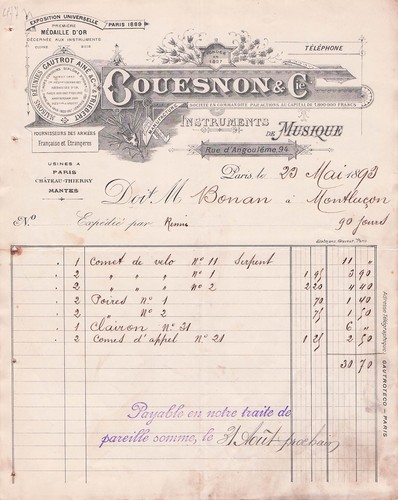 EXPOSITION UNIVERSELLE PARIS 1889
PREMIÈRE
MÉDAILLE D'OR
DÉCERNÉE AUX INSTRUMENTS
CUIVRE BOIS
TÉLÉPHONE
MAISONS RÉUNIES GAUTROT AINÉ & Cie & P. TRIEBERT
1827
COUESNON & Cie
SOCIÉTÉ EN COMMANDITE PAR ACTIONS AU CAPITAL DE 1.000.000 FRANCS
MANUFACTURE
INSTRUMENTS
DE MUSIQUE
Rue d'Angoulême, 94
FOURNISSEURS DES ARMÉES
Française et Etrangères
USINES A
PARIS
CHÂTEAU-THIERRY
MANTES
Paris, le 23 Mai 1893
Doit M Bonan à Montluçon
No Expédié par Remis 90 jours
1 Cornet de velo No 11 Serpent 11 "
2 " " " No 1 1 95 3 90
2 " " " No 2 2 20 4 40
2 Poires No 1 70 1 40
2 " No 2 75 1 50
1 Clairon No 31 6 "
2 Cornes d'appel No 21 1 25 2 50
30 70
Adresse Télégraphique: GAUTROTECO - PARIS
Payable en notre traite de
pareille somme, le 31 Août prochain